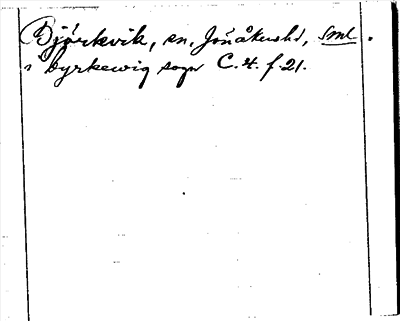 Björkvik, sn, Jönåkers hd, Sml.
i byrkewig sogn C. 4. f. 21.